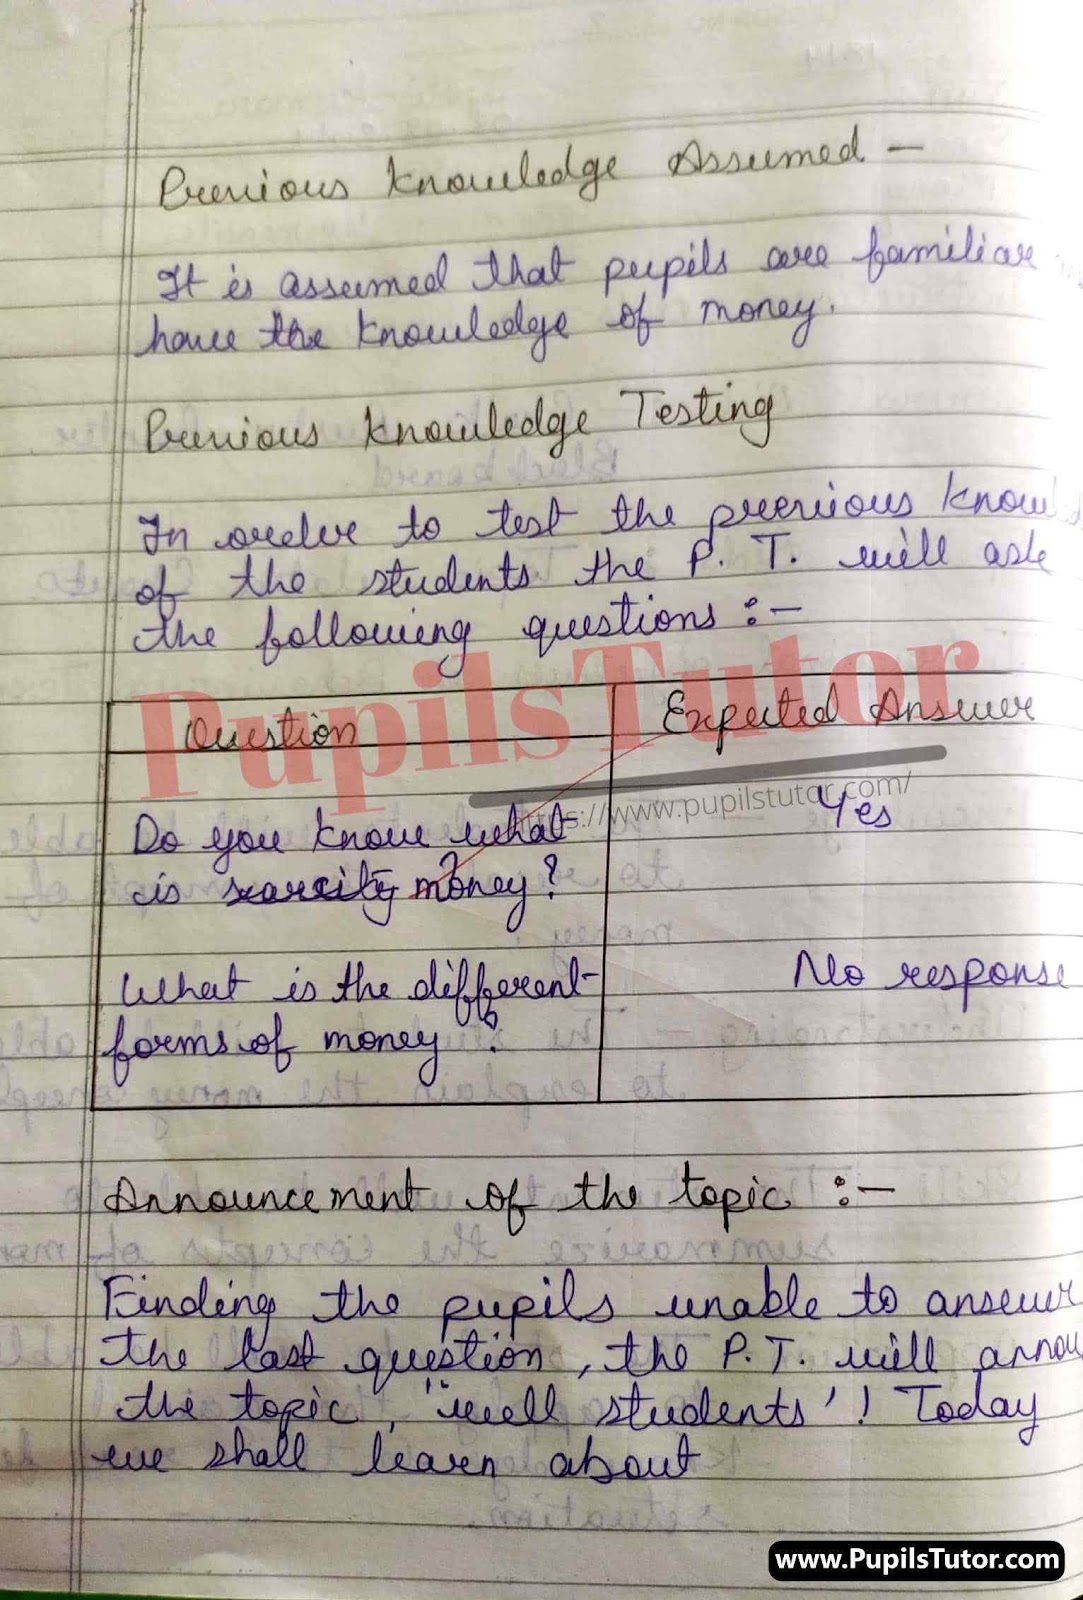 Previous knowledge Assumed –
It is assumed that pupils are familiar
have the knowledge of money.
Previous knowledge Testing
In order to test the previous know
of the students the P. T. will ask
the following questions :–
PupilsTutor
Question Expected Answer
https://www.pupilstutor.com/
Do you know what Yes
is scarcity money?
What is the different No response
forms of money ?
Announcement of the topic :–
Finding the pupils unable to answer
the last question, the P. T. will annou
the topic, "well students'! Today
we shall learn about
www.PupilsTutor.com